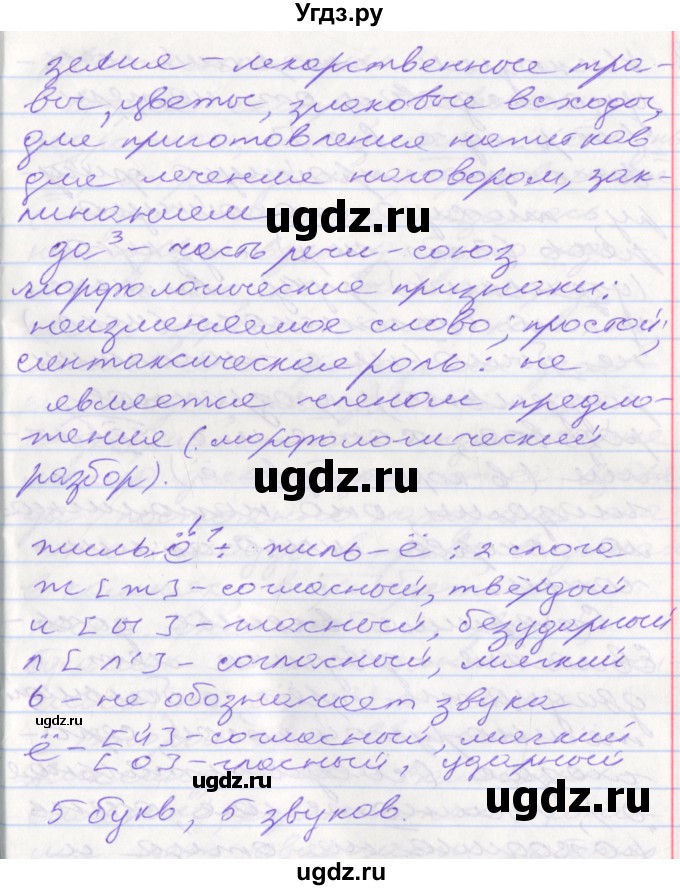 Угдз.ру
зелия – лекарственные тра-
вы, цветы, злаковые всходы,
для приготовления напитков
для лечения наговором, зак-
линанием
ugdz.ru
да³ – часть речи – союз
морфологические признаки:
неизменяемое слово; простой;
синтаксическая роль: не
является членом предло-
жения (морфологический
ugdz.ru
разбор).
жильё¹ : жиль-ё : 2 слога
ж [ж] – согласный, твёрдый
и [ы] – гласный, безударный
л [л'] – согласный, мягкий
ь – не обозначает звука
ugdz.ru
ё – [й] – согласный, мягкий
[о] – гласный, ударный
5 букв, 5 звуков.
ugdz.ru
ugdz.ru